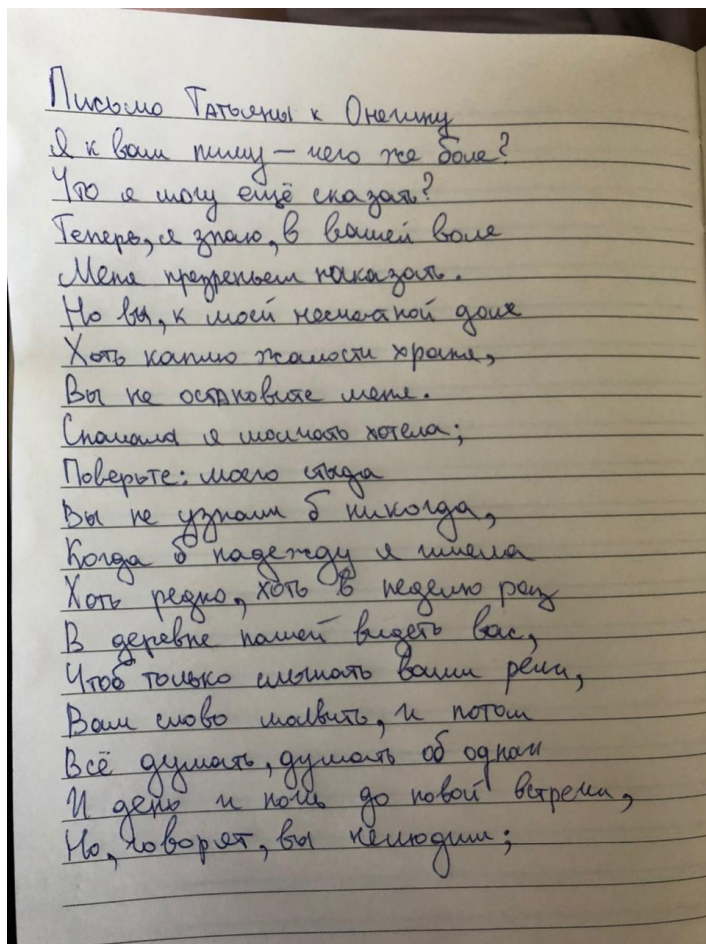 Письмо Татьяны к Онегину
Я к вам пишу – чего же боле?
Что я могу ещё сказать?
Теперь, я знаю, в вашей воле
Меня презреньем наказать.
Но вы, к моей несчастной доле
Хоть каплю жалости храня,
Вы не оставите меня.
Сначала я молчать хотела;
Поверьте: моего стыда
Вы не узнали б никогда,
Когда б надежду я имела
Хоть редко, хоть в неделю раз
В деревне нашей видеть вас,
Чтоб только слышать ваши речи,
Вам слово молвить, и потом
Всё думать, думать об одном
И день и ночь до новой встречи,
Но, говорят, вы нелюдим;